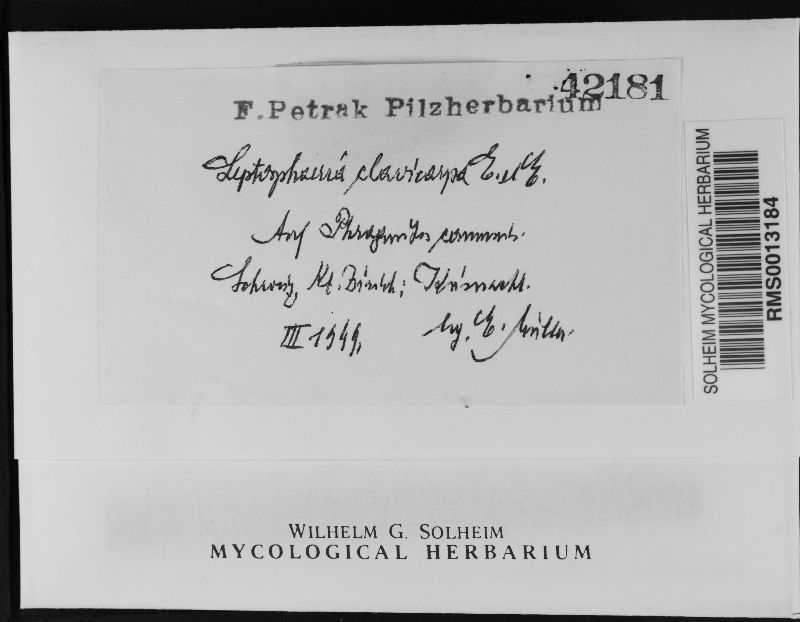 42181
F. Petrak Pilzherbarium
Leptosphaeria clavicarpa E. et E.
Auf Phragmites communis.
Schweiz, Kt. Zürich; Küsnacht.
III 1949. leg. E. Müller.
SOLHEIM MYCOLOGICAL HERBARIUM
RMS0013184
WILHELM G. SOLHEIM
MYCOLOGICAL HERBARIUM